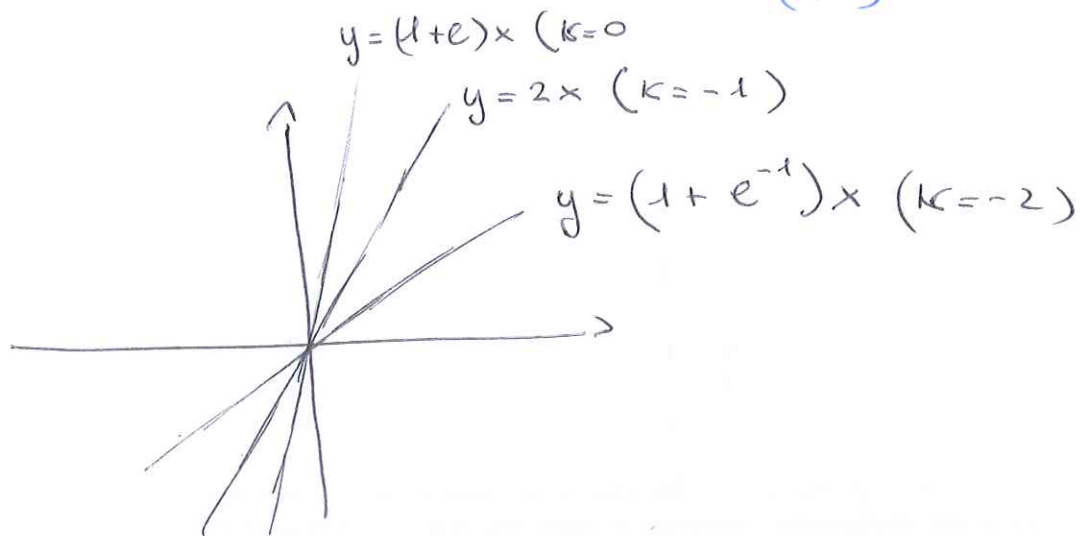 y = (1+e)x (k=0
y = 2x (k = -1)
y = (1 + e⁻¹)x (k = -2)